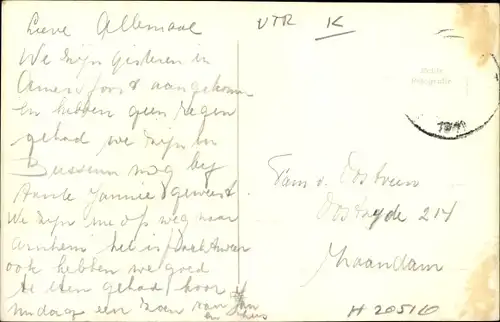 Lieve Allemaal
We zijn gisteren in
Amersfoort aangekomen
en hebben geen regen
gehad we zijn in
Bussum nog bij
tante Jannie geweest.
We zijn nu op weg naar
Arnhem het is
ook hebben we goed
te eten gehad hoor
middag een van
VTR K
Echte
Fotografie
Fam v. Oostveen
Oostzijde 214
Zaandam
H 20516